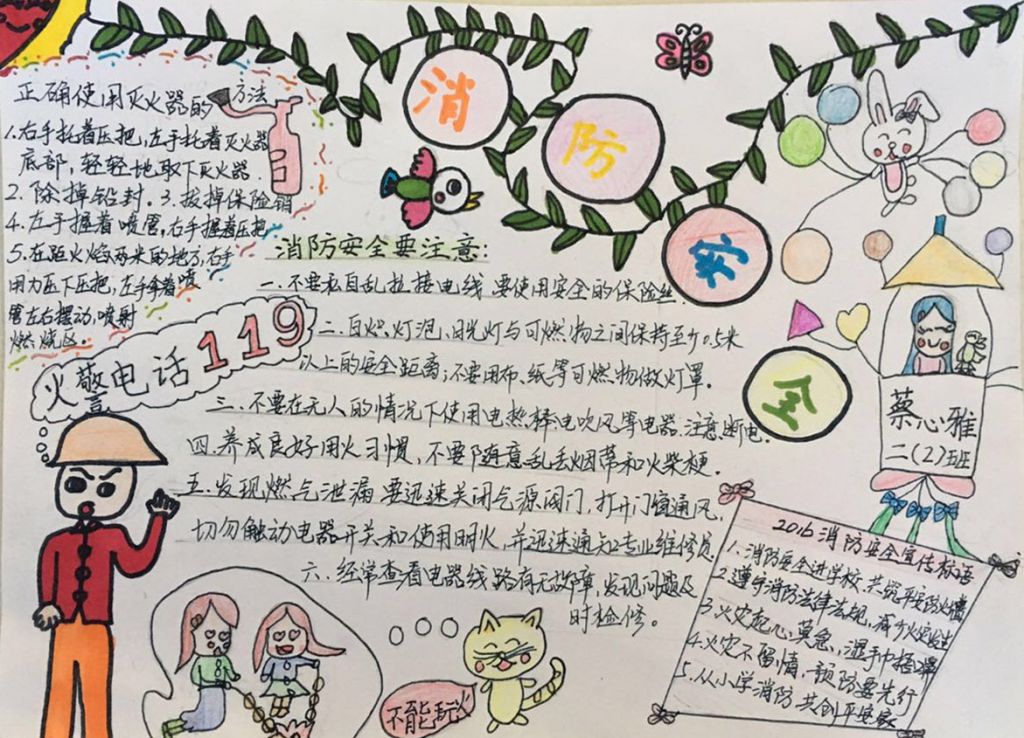 消
防
安
全
正确使用灭火器的方法
1.右手托着压把,左手托着灭火器
底部,轻轻地取下灭火器.
2.除掉铅封。3.拔掉保险销
4.左手握着喷管,右手握着压把
5.在距火焰两米的地方,右手
用力压下压把,左手拿着喷
管左右摆动,喷射
燃烧区。
火警电话119
消防安全要注意:
一.不要私自乱拉接电线.要使用安全的保险丝.
二.白炽灯泡、日光灯与可燃物之间保持至少0.5米
以上的安全距离;不要用布、纸等可燃物做灯罩.
三.不要在无人的情况下使用电热棒电吹风等电器.注意断电.
四.养成良好用火习惯,不要随意乱丢烟蒂和火柴梗.
五.发现燃气泄漏要迅速关闭气源阀门,打开门窗通风,
切勿触动电器开关和使用明火,并迅速通知专业维修员.
六.经常查看电器线路有无故障,发现问题及
时检修。
蔡心雅
二(2)班
2016消防安全宣传标语
1.消防安全进学校,共筑平安防火墙
2.遵守消防法律法规,减少火灾发生
3.火灾起,心莫急,湿手巾捂口鼻
4.火灾不留情,预防要先行
5.从小学消防 共创平安家
不能玩火